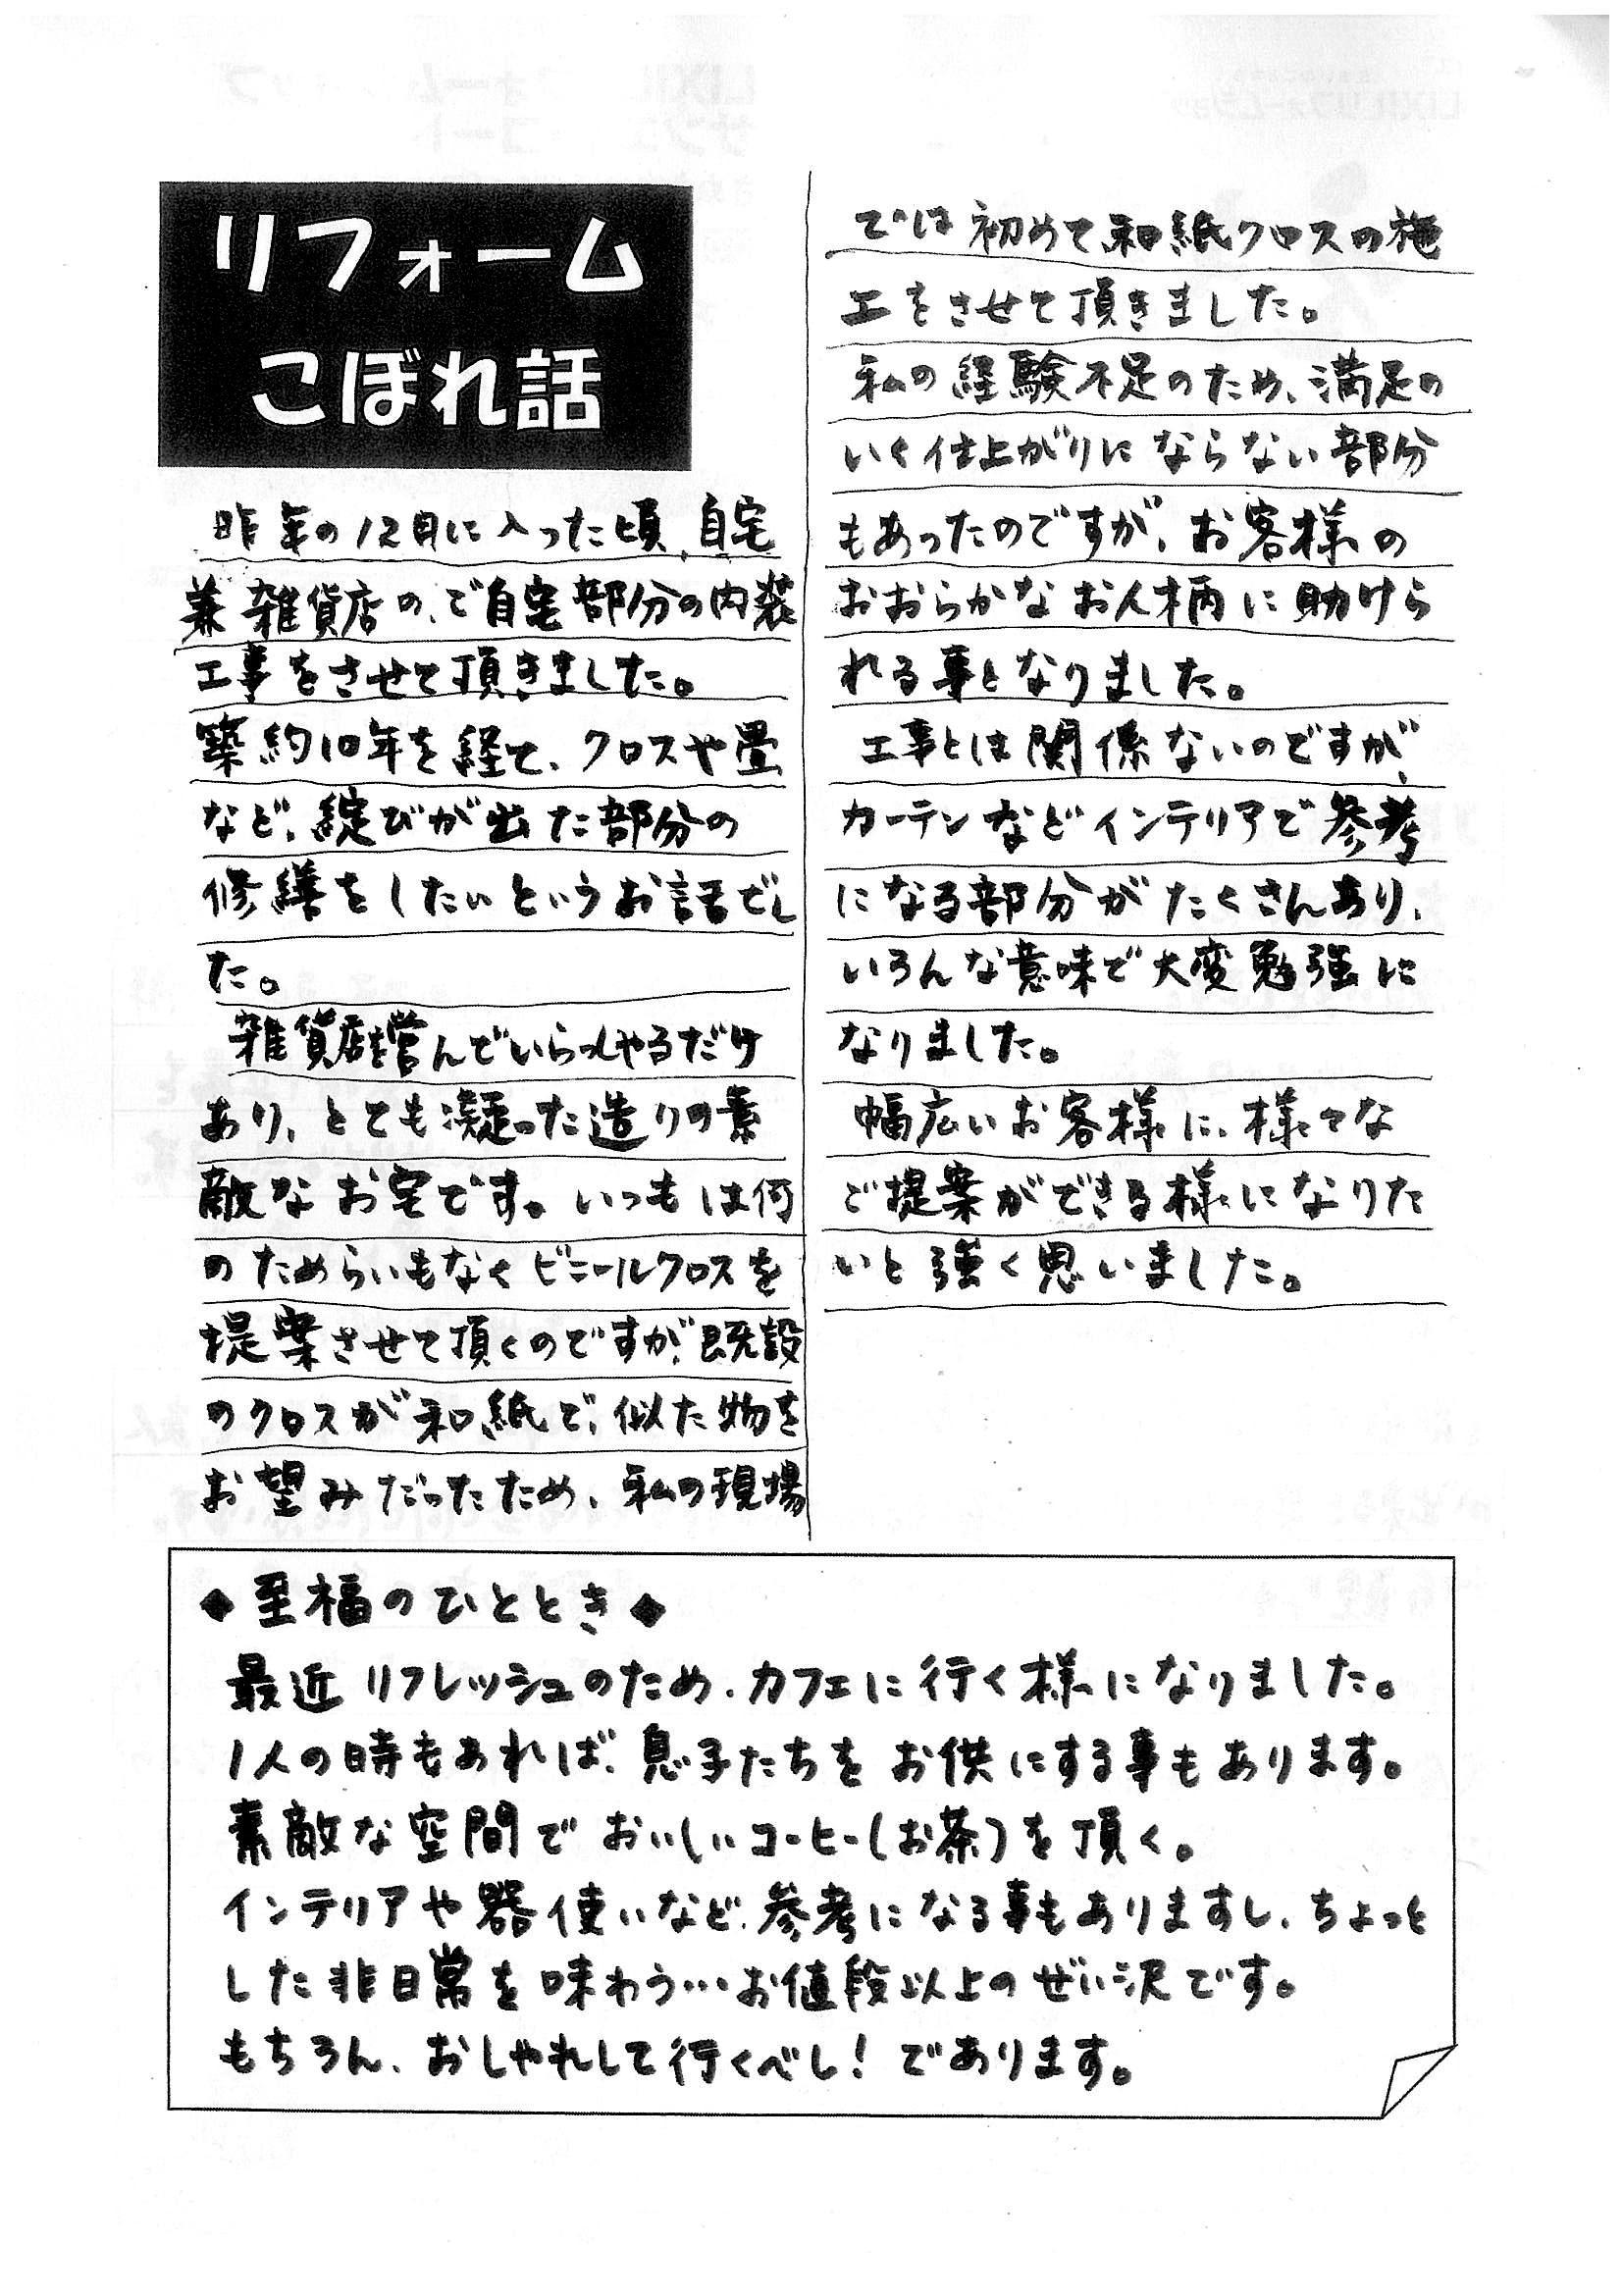 リフォーム
こぼれ話
昨年の12月に入った頃、自宅
兼雑貨店の、ご自宅部分の内装
工事をさせて頂きました。
築約10年を経て、クロスや畳
など、綻びが出た部分の
修繕をしたいというお話でし
た。
雑貨店を営んでいらっしゃるだけ
あり、とても凝った造りの素
敵なお宅です。いつもは何
のためらいもなくビニールクロスを
提案させて頂くのですが、既設
のクロスが和紙で、似た物を
お望みだったため、私の現場
では初めて和紙クロスの施
工をさせて頂きました。
私の経験不足のため、満足の
いく仕上がりにならない部分
もあったのですが、お客様の
おおらかなお人柄に助けら
れる事となりました。
工事とは関係ないのですが、
カーテンなどインテリアで参考
になる部分がたくさんあり、
いろんな意味で大変勉強に
なりました。
幅広いお客様に、様々な
ご提案ができる様になりた
いと強く思いました。
◆至福のひととき◆
最近リフレッシュのため、カフェに行く様になりました。
1人の時もあれば、息子たちをお供にする事もあります。
素敵な空間でおいしいコーヒー(お茶)を頂く。
インテリアや器使いなど、参考になる事もありますし、ちょっと
した非日常を味わう…お値段以上のぜい沢です。
もちろん、おしゃれして行くべし!であります。